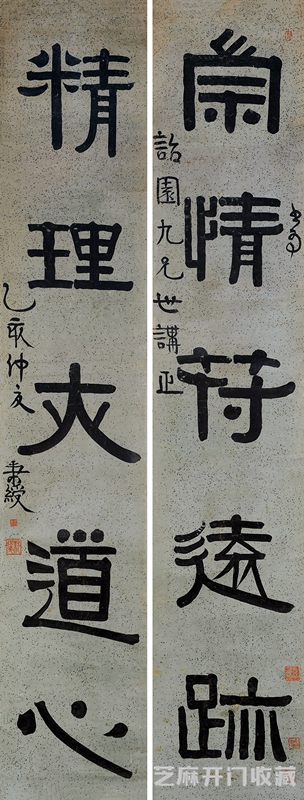 書為
崇情符遠跡
詒園九兄世講正
精理 道心
乙亥仲夏 秉綬
芝麻开门收藏